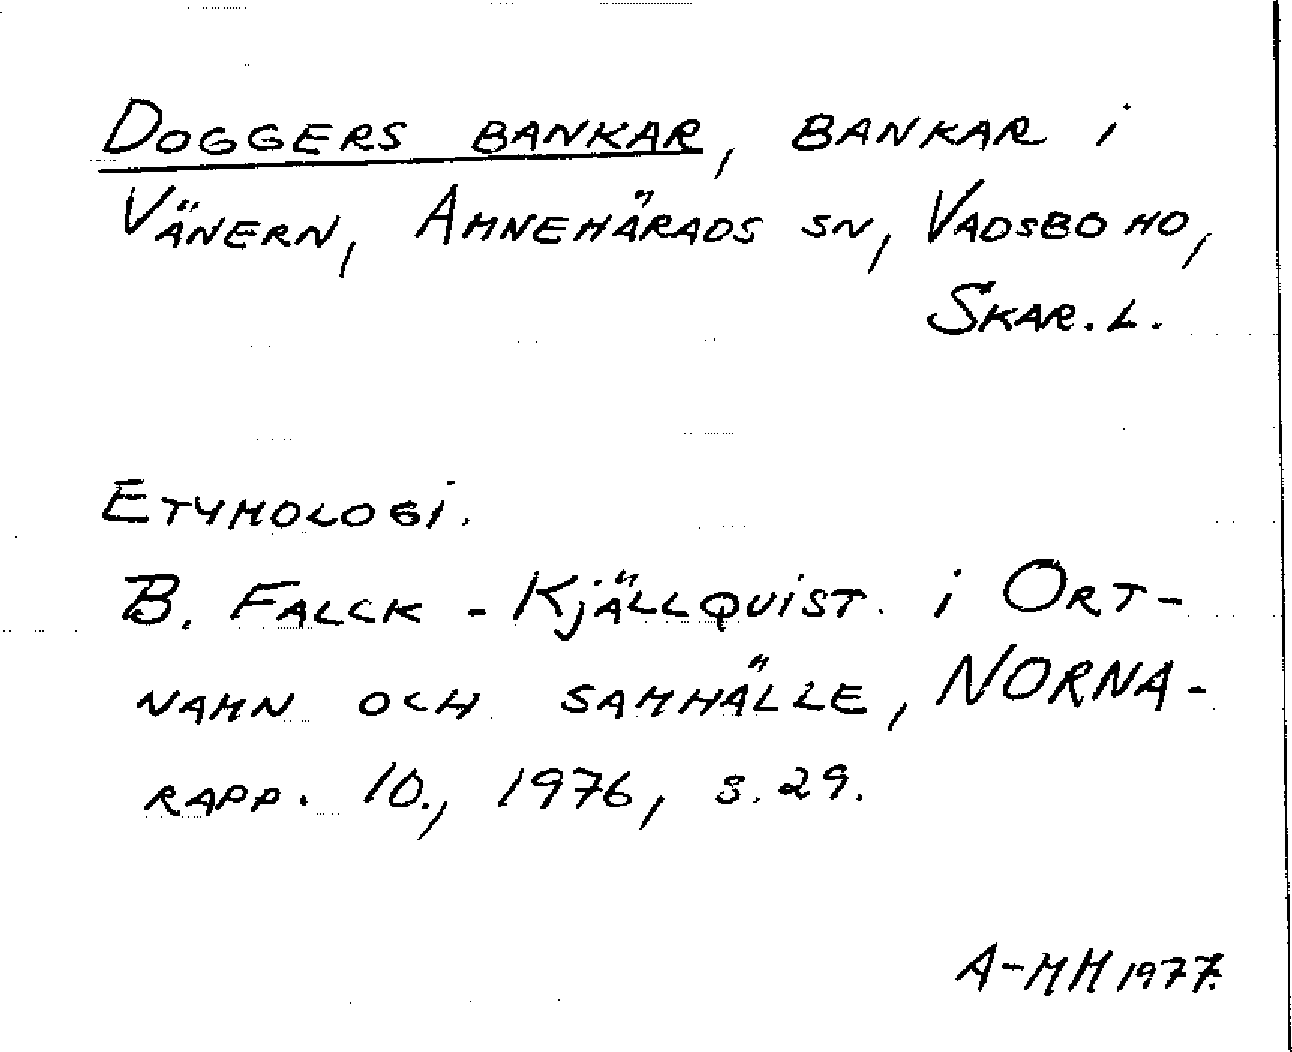 DOGGERS BANKAR, BANKAR i
VÄNERN, AMNEHÄRADS SN, VADSBO HD,
SKAR. L.
ETYMOLOGi.
B. FALCK-KjÄLLQUiST i ORT-
NAMN OCH SAMHÄLLE, NORNA-
RAPP. 10., 1976, S. 29.
A-MM 1977.